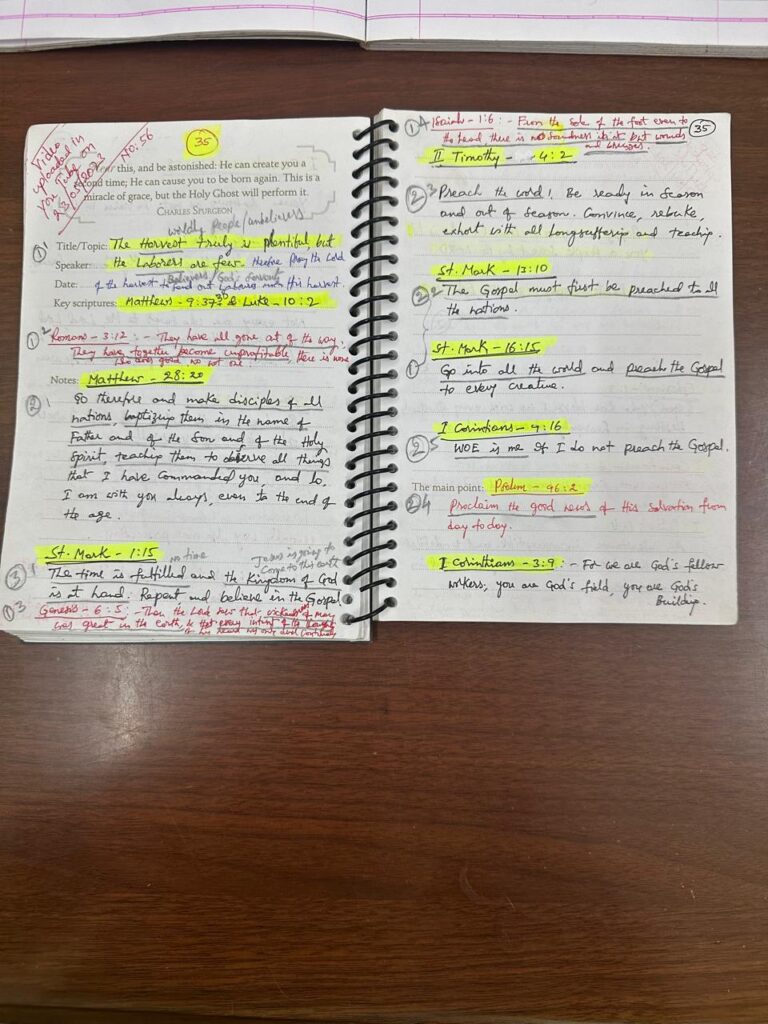 Video
uploaded in
You Tube on
23/01/2023
No. 56
35
this, and be astonished: He can create you a
second time; He can cause you to be born again. This is a
miracle of grace, but the Holy Ghost will perform it.
CHARLES SPURGEON
worldly people/unbelievers
1 1 Title/Topic: The Harvest truly is plentiful, but
Speaker: the Laborers are few. therefore Pray the Lord
Believers/God's Servants
Date: of the harvest to send out labourers into His harvest.
Key scriptures: Matthew - 9:37,38 & Luke - 10:2
1 2 Romans - 3:12 :- They have all gone out of the way;
They have together become unprofitable, there is none
who does good, no not one
Notes: Matthew - 28:20
2 1 Go therefore and make disciples of all
nations, baptizing them in the name of
Father and of the Son and of the Holy
Spirit, teaching them to observe all things
that I have commanded you, and lo,
I am with you always, even to the end of
the age.
St. Mark - 1:15
no time
Jesus is going to
come to this earth
3 1 The time is fulfilled and the Kingdom of God
is at hand. Repent and believe in the Gospel
1 3 Genesis - 6:5 :- Then the Lord saw that wickedness of man
was great in the earth, & that every intent of the thoughts
of his heart was only evil continually
1 4 Isaiah - 1:6 :- From the sole of the foot even to
35
the head there is no soundness in it but wounds
and bruises.
II Timothy - 4:2
2 3 Preach the word! Be ready in Season
and out of Season. Convince, rebuke,
exhort with all Longsuffering and teaching.
St. Mark - 13:10
2 2 The Gospel must first be preached to all
the nations.
St. Mark - 16:15
Go into all the world and preach the Gospel
to every creature.
I Corintians - 9:16
2 5 WOE is me If I do not preach the Gospel.
The main point: Psalm - 96:2
2 4 Proclaim the good news of His Salvation from
day to day.
I Corinthians - 3:9 :- For we are God's fellow
workers, you are God's field, you are God's
Building.